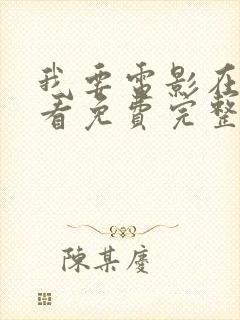 我要電影在
看免費完整
陳某慶